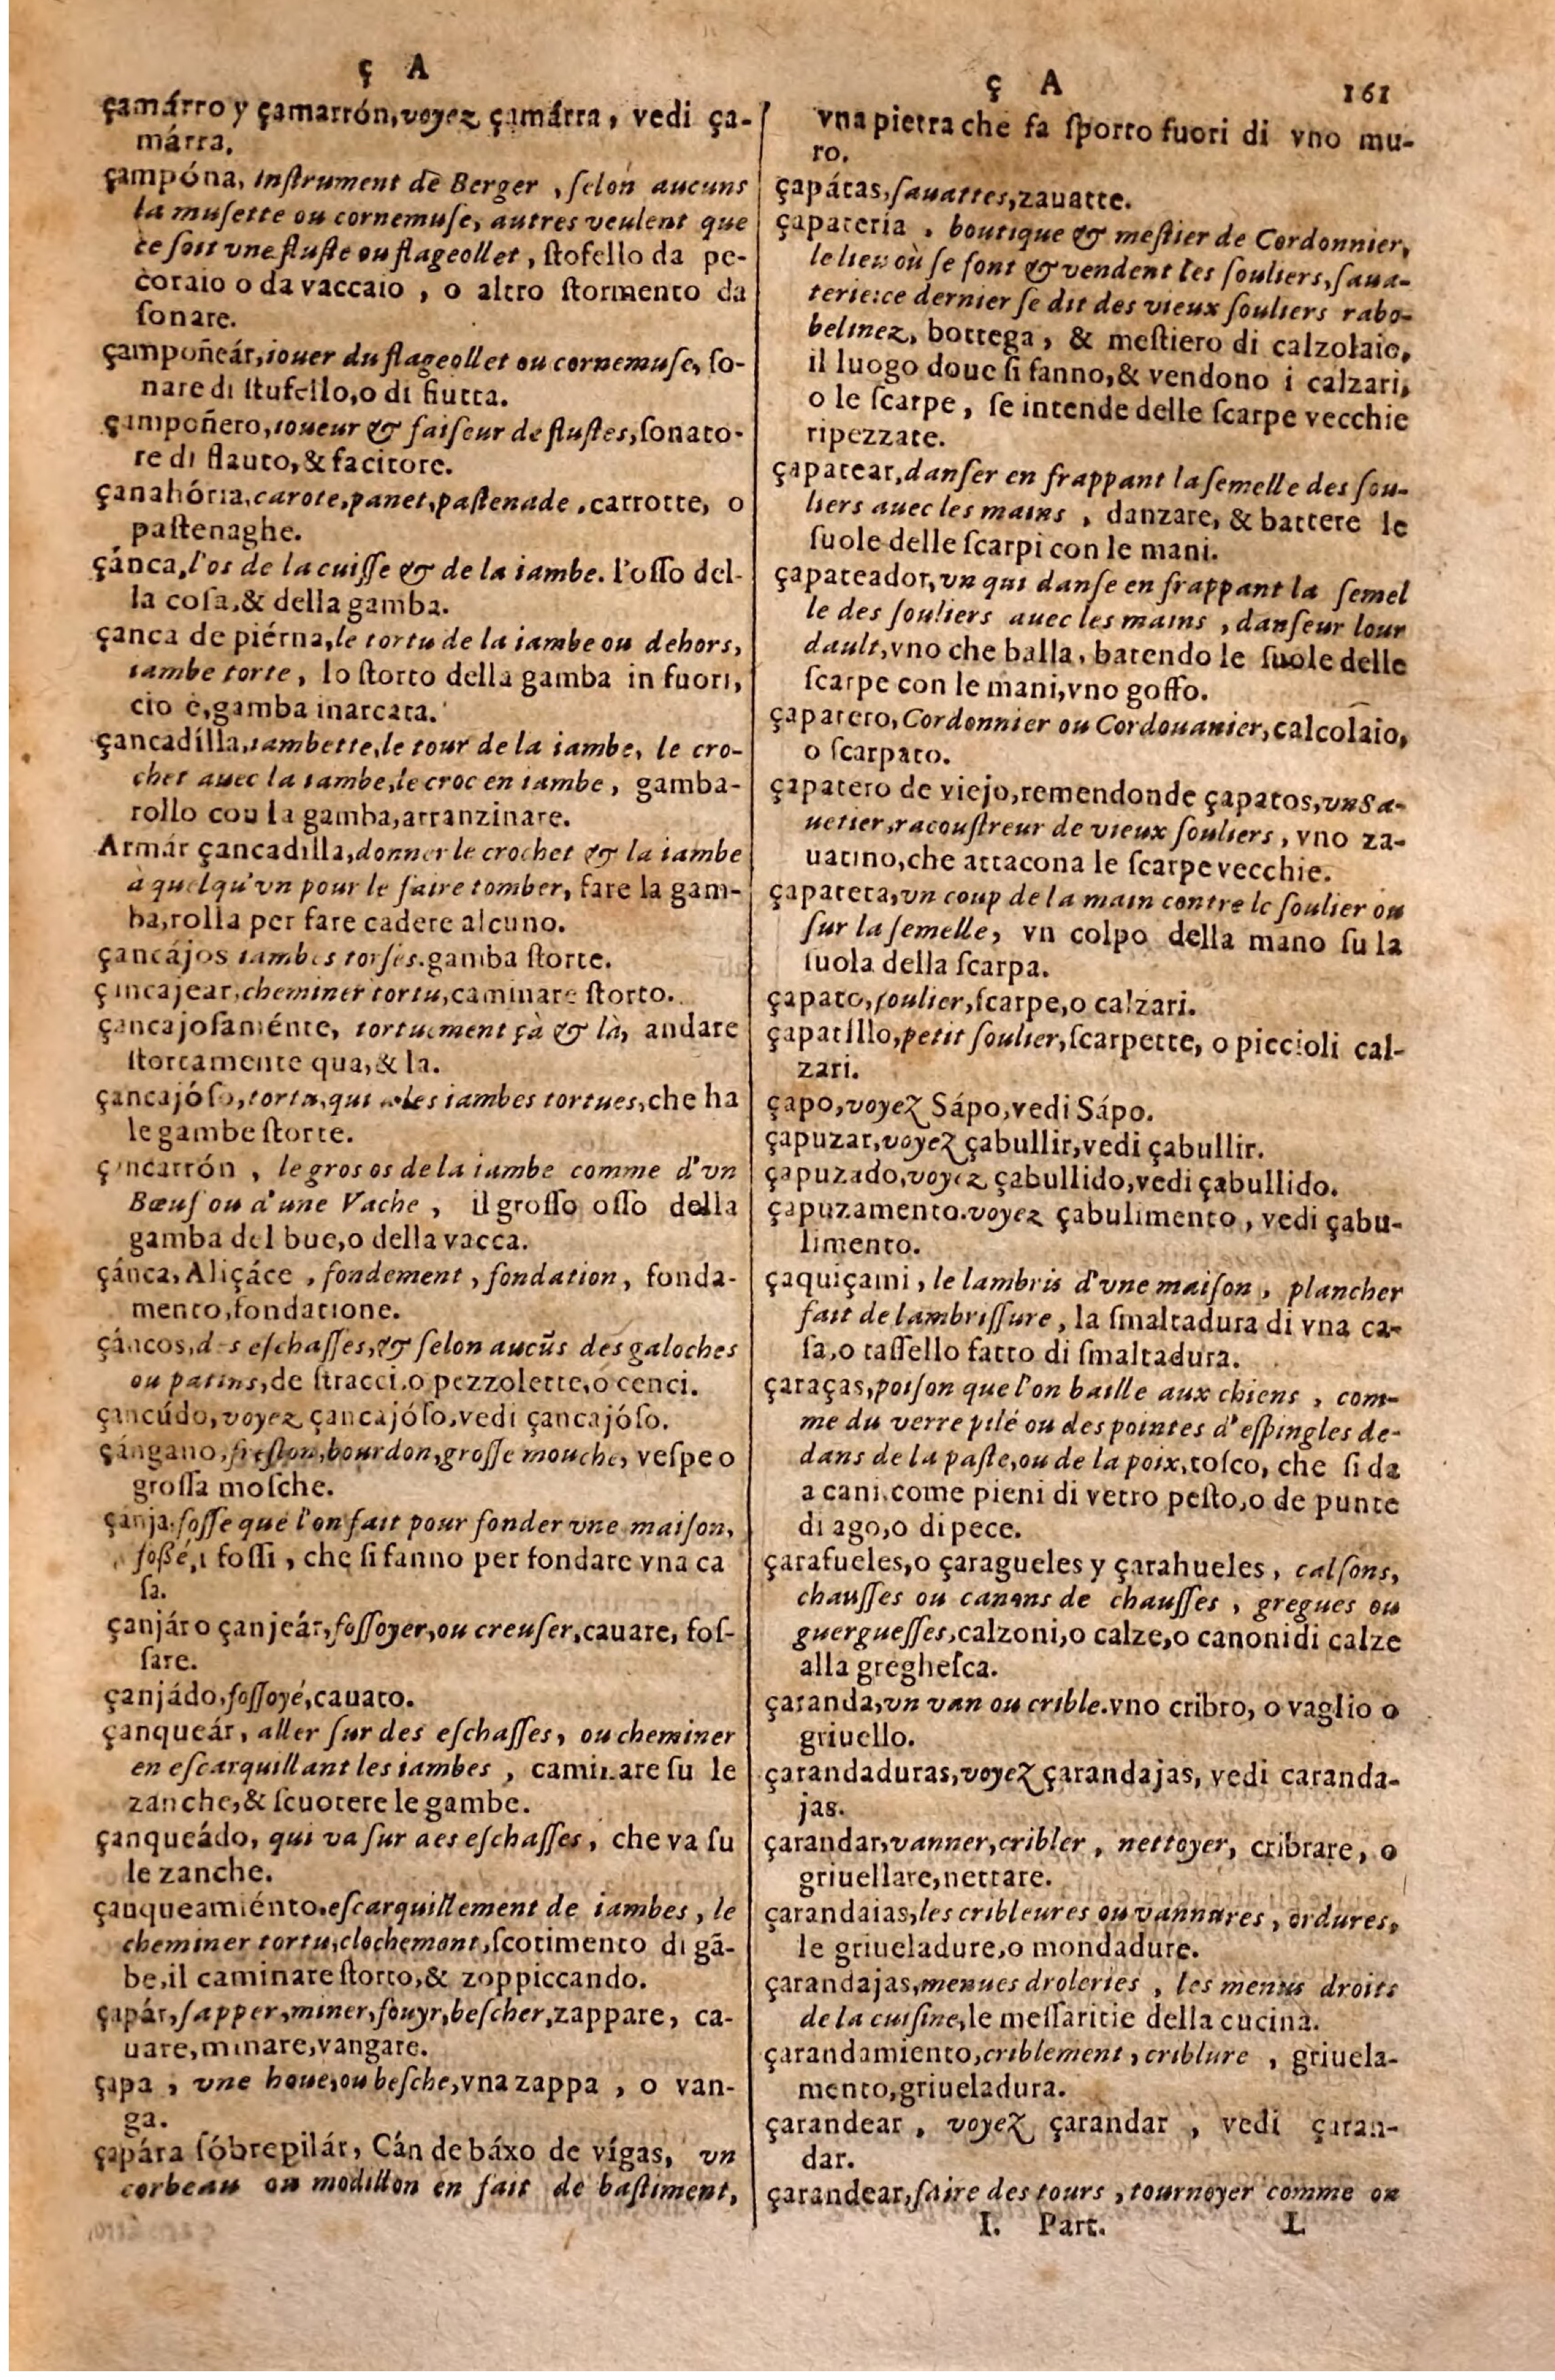 ç A
çamárro y çamarrón, voyez çamárra, vedi ça-
márra.
çampóna, instrument de Berger, ſelon aucuns
la muſette ou cornemuſe, autres veulent que
ce ſoit vne fluſte ou flageollet, ſtofello da pe-
coraio o da vaccaio, o altro ſtormento da
ſonare.
çampoñeár, iouer du flageollet ou cornemuſe, ſo-
nare di ſtufello, o di fiutta.
çampoñero, ioueur & faiſeur de fluſtes, ſonato-
re di flauto, & facitore.
çanahória, carote, panet, paſtenade, carrotte, o
paſtenaghe.
çánca, l'os de la cuiſſe & de la iambe. l'oſſo del-
la coſa, & della gamba.
çanca de piérna, le tortu de la iambe ou dehors,
iambe torte, lo ſtorto della gamba in fuori,
cio è, gamba inarcata.
çancadílla, iambette, le tour de la iambe, le cro-
chet auec la iambe, le croc en iambe, gamba-
rollo cou la gamba, arranzinare.
Armár çancadilla, donner le crochet & la iambe
à quelqu'vn pour le faire tomber, fare la gam-
ba, rolla per fare cadere alcuno.
çancájos iambes torſes. gamba ſtorte.
çancajear, cheminer tortu, caminare ſtorto.
çancajoſaménte, tortuement çà & là, andare
ſtortamente qua, & la.
çancajóſo, tortu, qui a les iambes tortues, che ha
le gambe ſtorte.
çancarrón, le gros os de la iambe comme d'vn
Bœuf ou d'une Vache, il groſſo oſſo della
gamba del bue, o della vacca.
çánca, Aliçáce, fondement, fondation, fonda-
mento, fondatione.
çáncos, des eſchaſſes, & ſelon aucũs des galoches
ou patins, de ſtracci, o pezzolette, o cenci.
çancúdo, voyez çancajóſo, vedi çancajóſo.
çángano, freſlon, bourdon, groſſe mouche, veſpe o
groſſa moſche.
çanja. foſſe que l'on fait pour fonder vne maiſon,
foßé, i foſſi, che ſi fanno per fondare vna ca
ſa.
çanjár o çanjeár, foſſoyer, ou creuſer, cauare, foſ-
ſare.
çanjádo, foſſoyé, cauato.
çanqueár, aller ſur des eſchaſſes, ou cheminer
en eſcarquillant les iambes, caminare ſu le
zanche, & ſcuotere le gambe.
çanqueádo, qui va ſur des eſchaſſes, che va ſu
le zanche.
çauqueamiénto. eſcarquillement de iambes, le
cheminer tortu, clochemont, ſcotimento di gã-
be, il caminare ſtorto, & zoppiccando.
çapár, ſapper, miner, fouyr, beſcher, zappare, ca-
uare, minare, vangare.
çapa, vne houe, ou beſche, vna zappa, o van-
ga.
çapára ſóbrepilár, Cán de báxo de vígas, vn
corbeau ou modillon en fait de baſtiment,
ç A 161
vna pietra che fa ſporto fuori di vno mu-
ro.
çapátas, ſauattes, zauatte.
çapateria, boutique & meſtier de Cordonnier,
le lieu où ſe font & vendent les ſouliers, ſaua-
terie: ce dernier ſe dit des vieux ſouliers rabo-
belinez, bottega, & meſtiero di calzolaio,
il luogo doue ſi fanno, & vendono i calzari,
o le ſcarpe, ſe intende delle ſcarpe vecchie
ripezzate.
çapatear, danſer en frappant la ſemelle des ſou-
liers auec les mains, danzare, & battere le
ſuole delle ſcarpi con le mani.
çapateador, vn qui danſe en frappant la ſemel
le des ſouliers auec les mains, danſeur lour
dault, vno che balla, batendo le ſuole delle
ſcarpe con le mani, vno goffo.
çapatero, Cordonnier ou Cordouanier, calcolaio,
o ſcarpato.
çapatero de viejo, remendonde çapatos, vn Sa-
uetier, racouſtreur de vieux ſouliers, vno za-
uatino, che attacona le ſcarpe vecchie.
çapateta, vn coup de la main contre le ſoulier ou
ſur la ſemelle, vn colpo della mano ſu la
ſuola della ſcarpa.
çapato, ſoulier, ſcarpe, o calzari.
çapatíllo, petit ſoulier, ſcarpette, o piccioli cal-
zari.
çapo, voyez Sápo, vedi Sápo.
çapuzar, voyez çabullir, vedi çabullir.
çapuzado, voyez çabullido, vedi çabullido.
çapuzamento. voyez çabulimento, vedi çabu-
limento.
çaquiçami, le lambris d'vne maiſon, plancher
fait de lambriſſure, la ſmaltadura di vna ca-
ſa, o taſſello fatto di ſmaltadura.
çaraças, poiſon que l'on baille aux chiens, com-
me du verre pilé ou des pointes d'eſpingles de-
dans de la paſte, ou de la poix, toſco, che ſi da
a cani, come pieni di vetro peſto, o de punte
di ago, o di pece.
çarafueles, o çaragueles y çarahueles, calſons,
chauſſes ou canons de chauſſes, gregues ou
guergueſſes, calzoni, o calze, o canoni di calze
alla gregheſca.
çaranda, vn van ou crible. vno cribro, o vaglio o
griuello.
çarandaduras, voyez çarandajas, vedi caranda-
jas.
çarandar, vanner, cribler, nettoyer, cribrare, o
griuellare, nettare.
çarandaias, les cribleures ou vannures, ordures,
le griueladure, o mondadure.
çarandajas, menues droleries, les menus droits
de la cuiſine, le meſſaritie della cucina.
çarandamiento, criblement, criblure, griuela-
mento, griueladura.
çarandear, voyez çarandar, vedi çaran-
dar.
çarandear, faire des tours, tournoyer comme on
I. Part. L